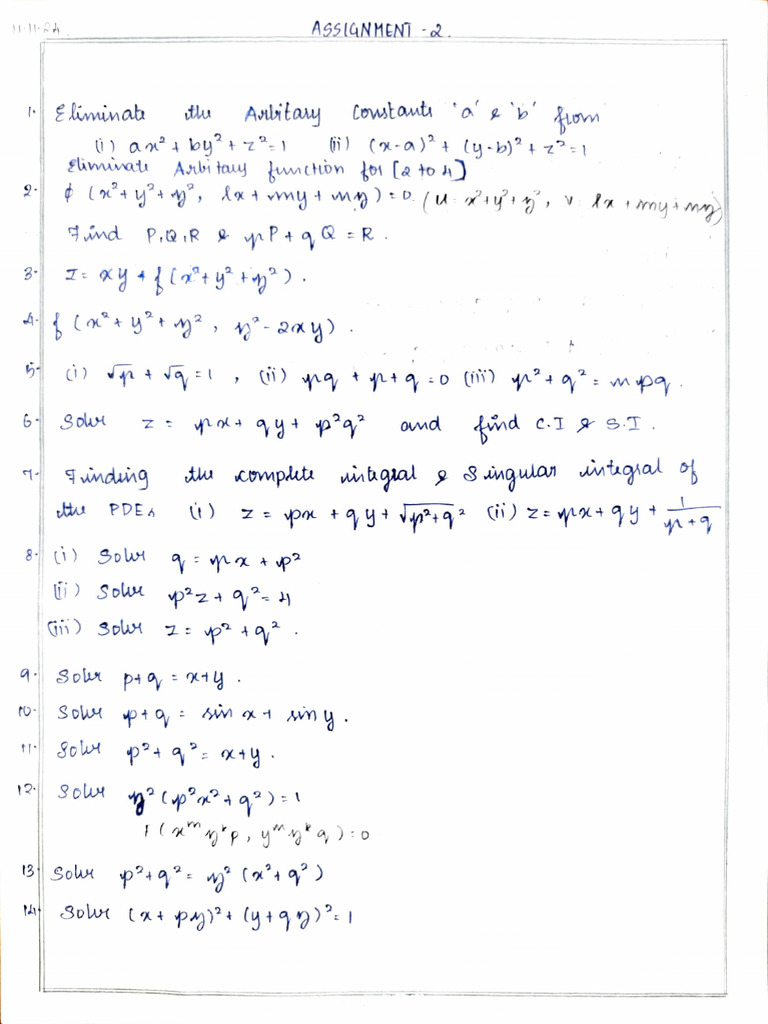 11.11.24
ASSIGNMENT - 2.
1. Eliminate the Arbitary Constants 'a' & 'b' from
(i) ax² + by² + z² = 1 (ii) (x-a)² + (y-b)² + z² = 1
Eliminate Arbitary function for [2 to 4]
2. φ (x² + y² + z², lx + my + nz) = 0. (u: x² + y² + z², v: lx + my + nz)
Find P, Q, R & pP + qQ = R.
3. Z = xy + f(x² + y² + z²).
4. f (x² + y² + z², z² - 2xy).
5. (i) √p + √q = 1, (ii) pq + p + q = 0 (iii) p² + q² = mpq.
6. Solve z = px + qy + p²q² and find C.I & S.I.
7. Finding the complete integral & Singular integral of
the PDEs (i) z = px + qy + √p² + q² ² (ii) z = px + qy + 1/(p + q)
8. (i) Solve q = px + p²
(ii) Solve p²z + q² = 4
(iii) Solve z = p² + q².
9. Solve p + q = x + y.
10. Solve p + q = sin x + sin y.
11. Solve p² + q² = x + y.
12. Solve z² (p²x² + q²) = 1
f(xᵐ zᵏ p, yᵐ zᵏ q) = 0
13. Solve p² + q² = z² (x² + q²)
14. Solve (x + pz)² + (y + qz)² = 1